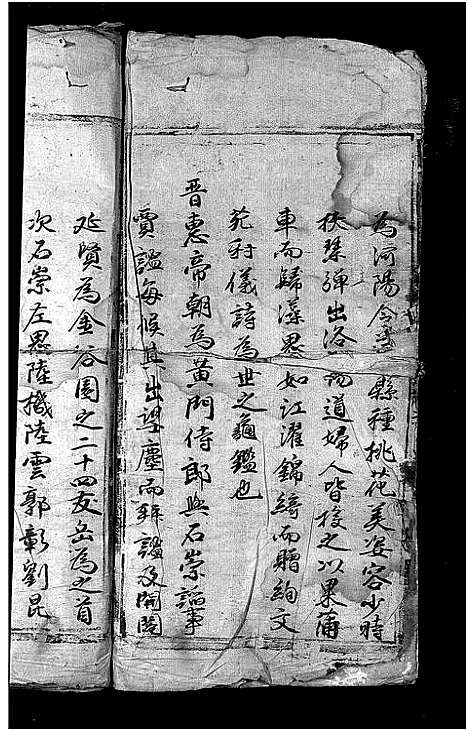 為河陽令盡縣種桃花美姿容少時
挾琴彈出洛陽道婦人皆投之以菓滿
車而歸藻思如江濯錦綺而贈絢文
苑射儀詩為世之龜鑑也
晋惠帝朝為黃門侍郎與石崇諂事
賈謐每候其出望塵而拜謐及開閣
延賢為金谷園之二十四友岳為之首
次石崇左思陸機陸雲郭彰劉昆